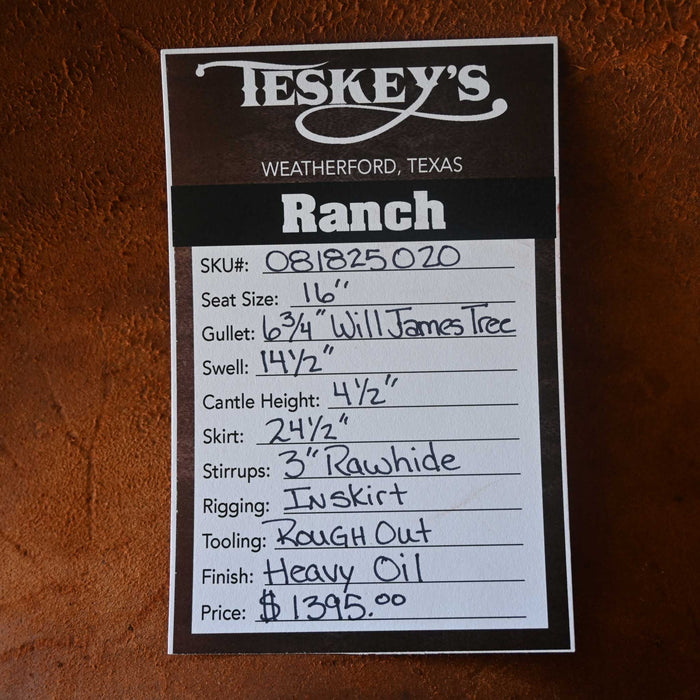 TESKEY'S
WEATHERFORD, TEXAS
Ranch
SKU#: 081825020
Seat Size: 16"
Gullet: 6 3/4" Will James Tree
Swell: 14 1/2"
Cantle Height: 4 1/2"
Skirt: 24 1/2"
Stirrups: 3" Rawhide
Rigging: Inskirt
Tooling: Rough Out
Finish: Heavy Oil
Price: $1395.00